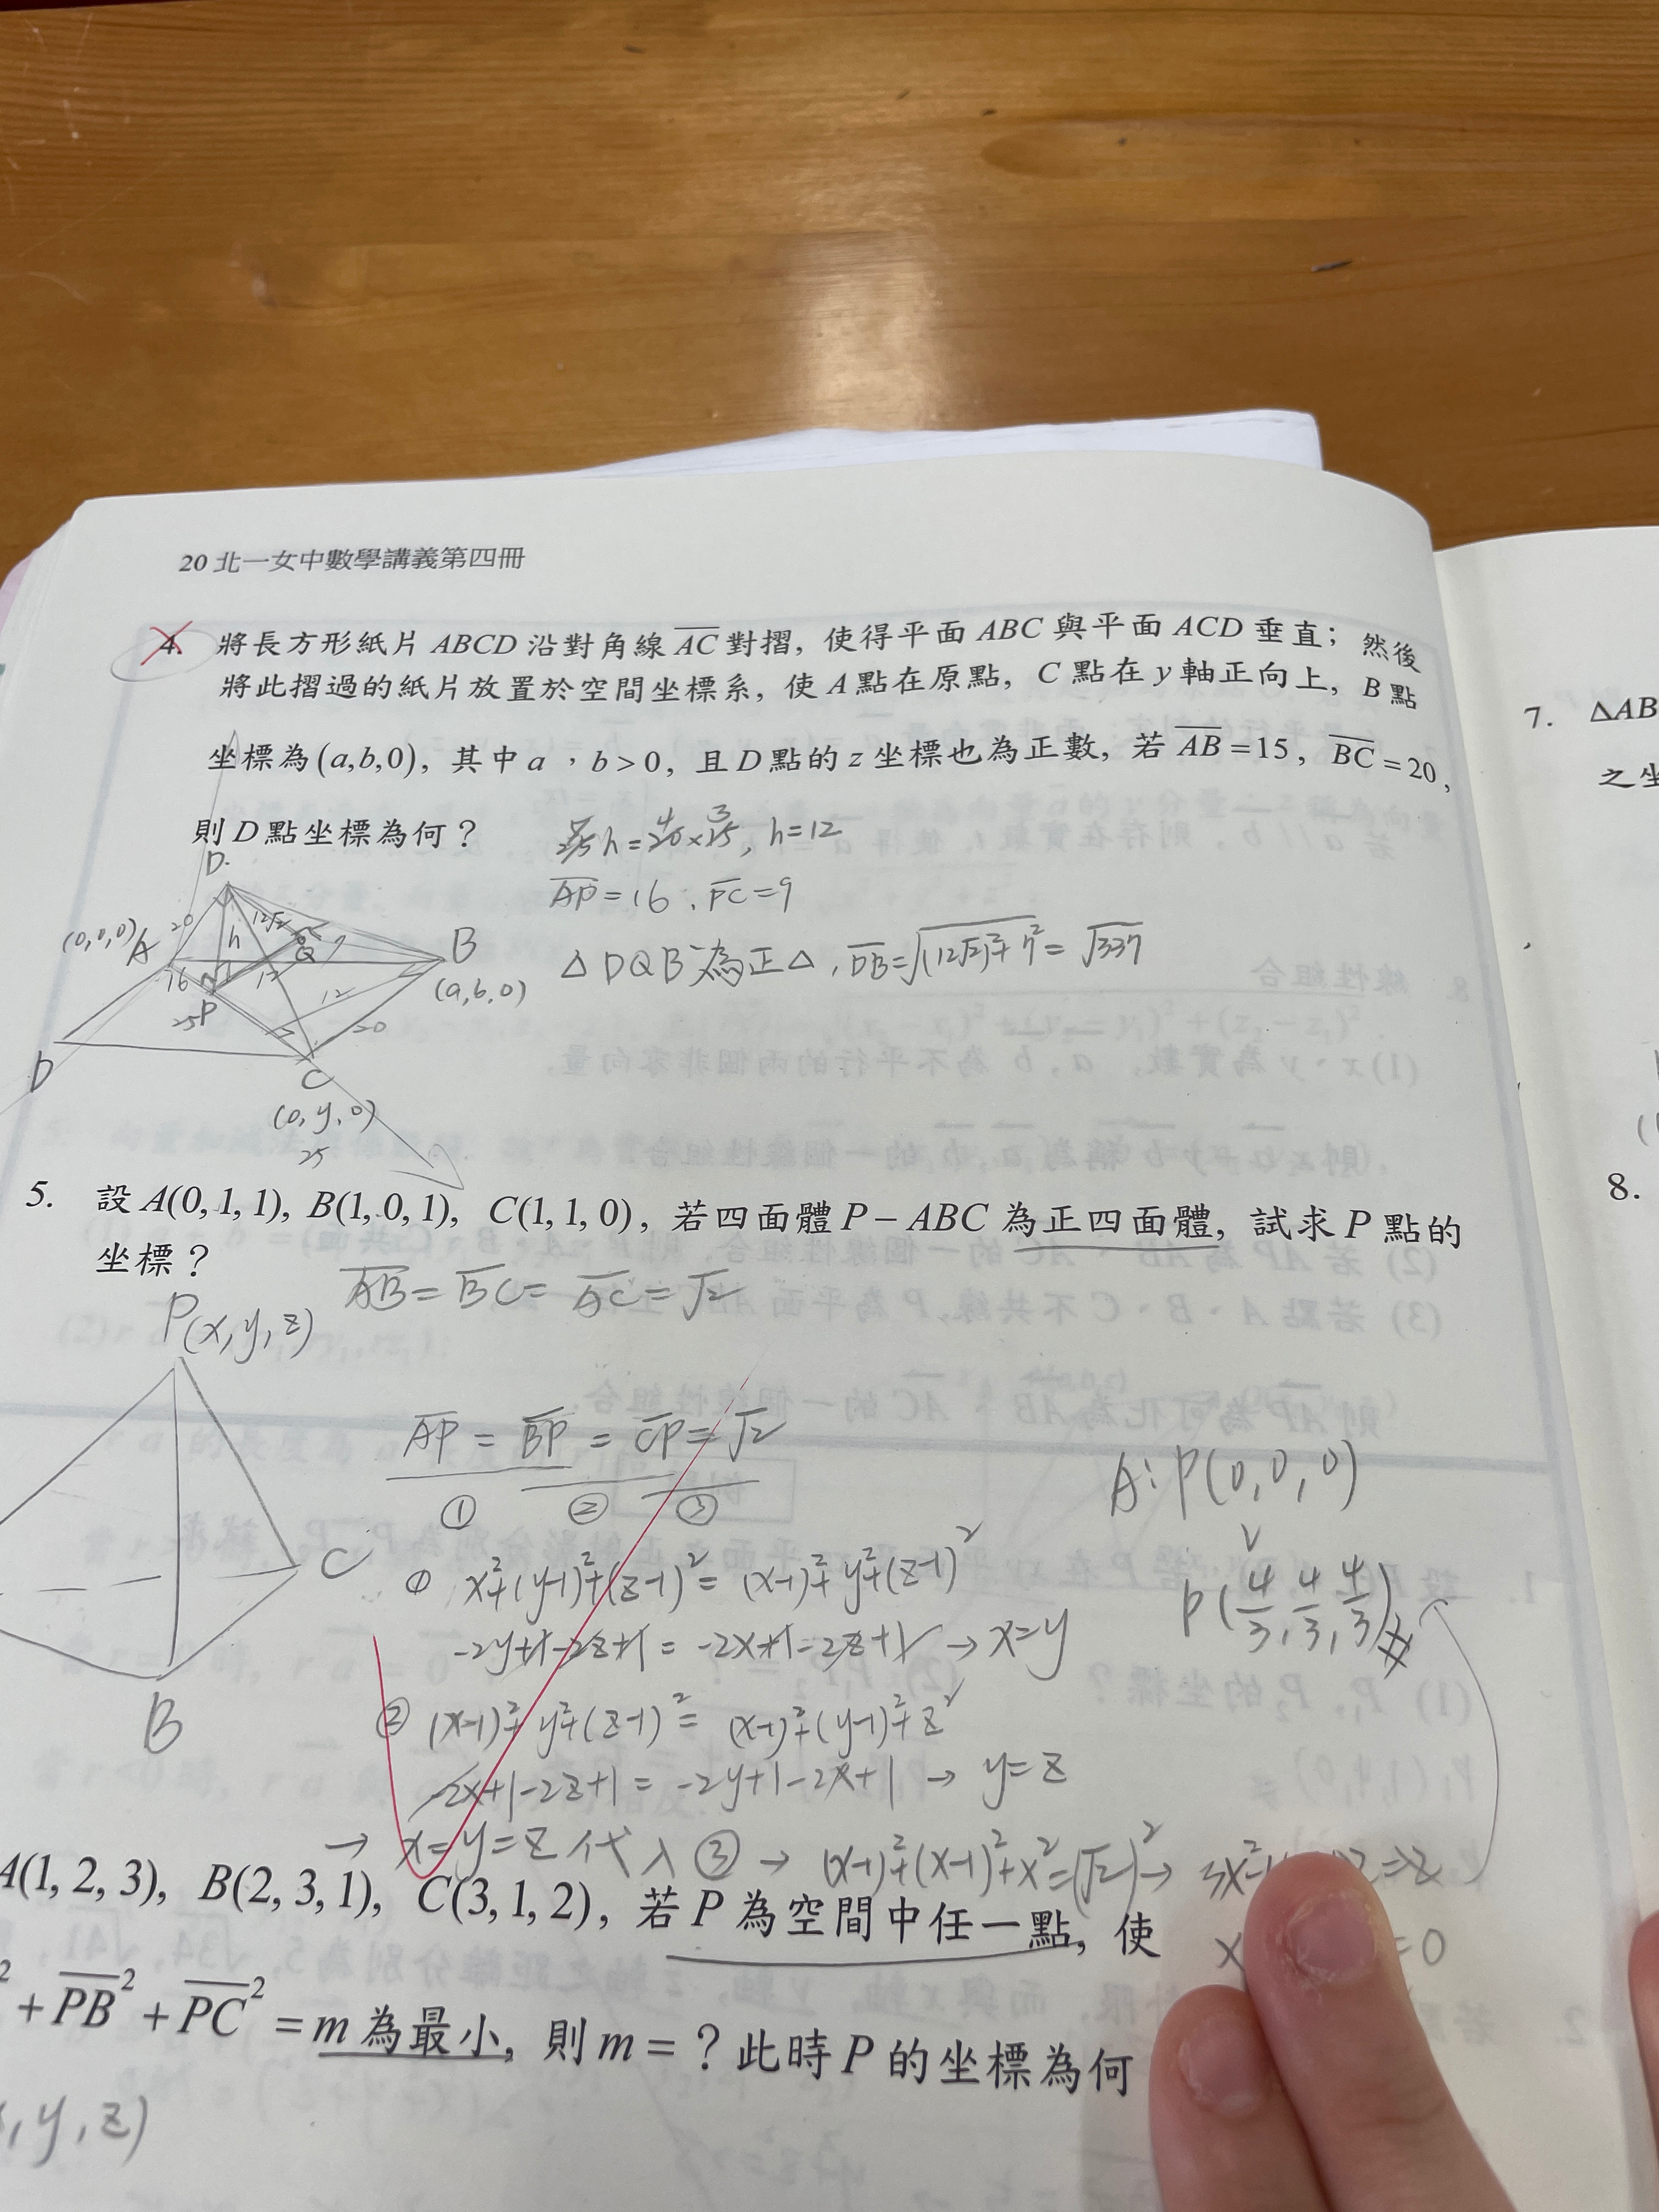 20 北一女中數學講義第四冊
4. 將長方形紙片 ABCD 沿對角線 \overline{AC} 對摺，使得平面 ABC 與平面 ACD 垂直；然後
將此摺過的紙片放置於空間坐標系，使 A 點在原點，C 點在 y 軸正向上，B 點
坐標為 (a,b,0)，其中 a，b>0，且 D 點的 z 坐標也為正數，若 \overline{AB}=15，\overline{BC}=20，
則 D 點坐標為何？
h=12
\overline{AP}=16，\overline{PC}=9
△DQB為正△，\overline{DB}=√((12√2)²+7²)=√337
D
(0,0,0) A
20
h
12√2
Q
7
B
(a,b,0)
16
12
P
25
12
20
D
C
(0,y,0)
25
5. 設 A(0,1,1), B(1,0,1), C(1,1,0)，若四面體 P－ABC 為正四面體，試求 P 點的
坐標？
\overline{AB}=\overline{BC}=\overline{AC}=√2
P(x,y,z)
\overline{AP}=\overline{BP}=\overline{CP}=√2
① ② ③
A：P(0,0,0)
P(4/3,4/3,4/3)
C
B
① x²+(y-1)²+(z-1)²=(x-1)²+y²+(z-1)²
-2y+1-2z+1=-2x+1-2z+1→x=y
② (x-1)²+y²+(z-1)²=(x-1)²+(y-1)²+z²
-2x+1-2z+1=-2y+1-2x+1→y=z
→ x=y=z 代入③→(x-1)²+(x-1)²+x²=(√2)²→3x²
=0
A(1,2,3), B(2,3,1), C(3,1,2)，若 P 為空間中任一點，使
²+\overline{PB}²+\overline{PC}²=m 為最小，則 m=？此時 P 的坐標為何
,y,z)
7. △AB
之坐
8.